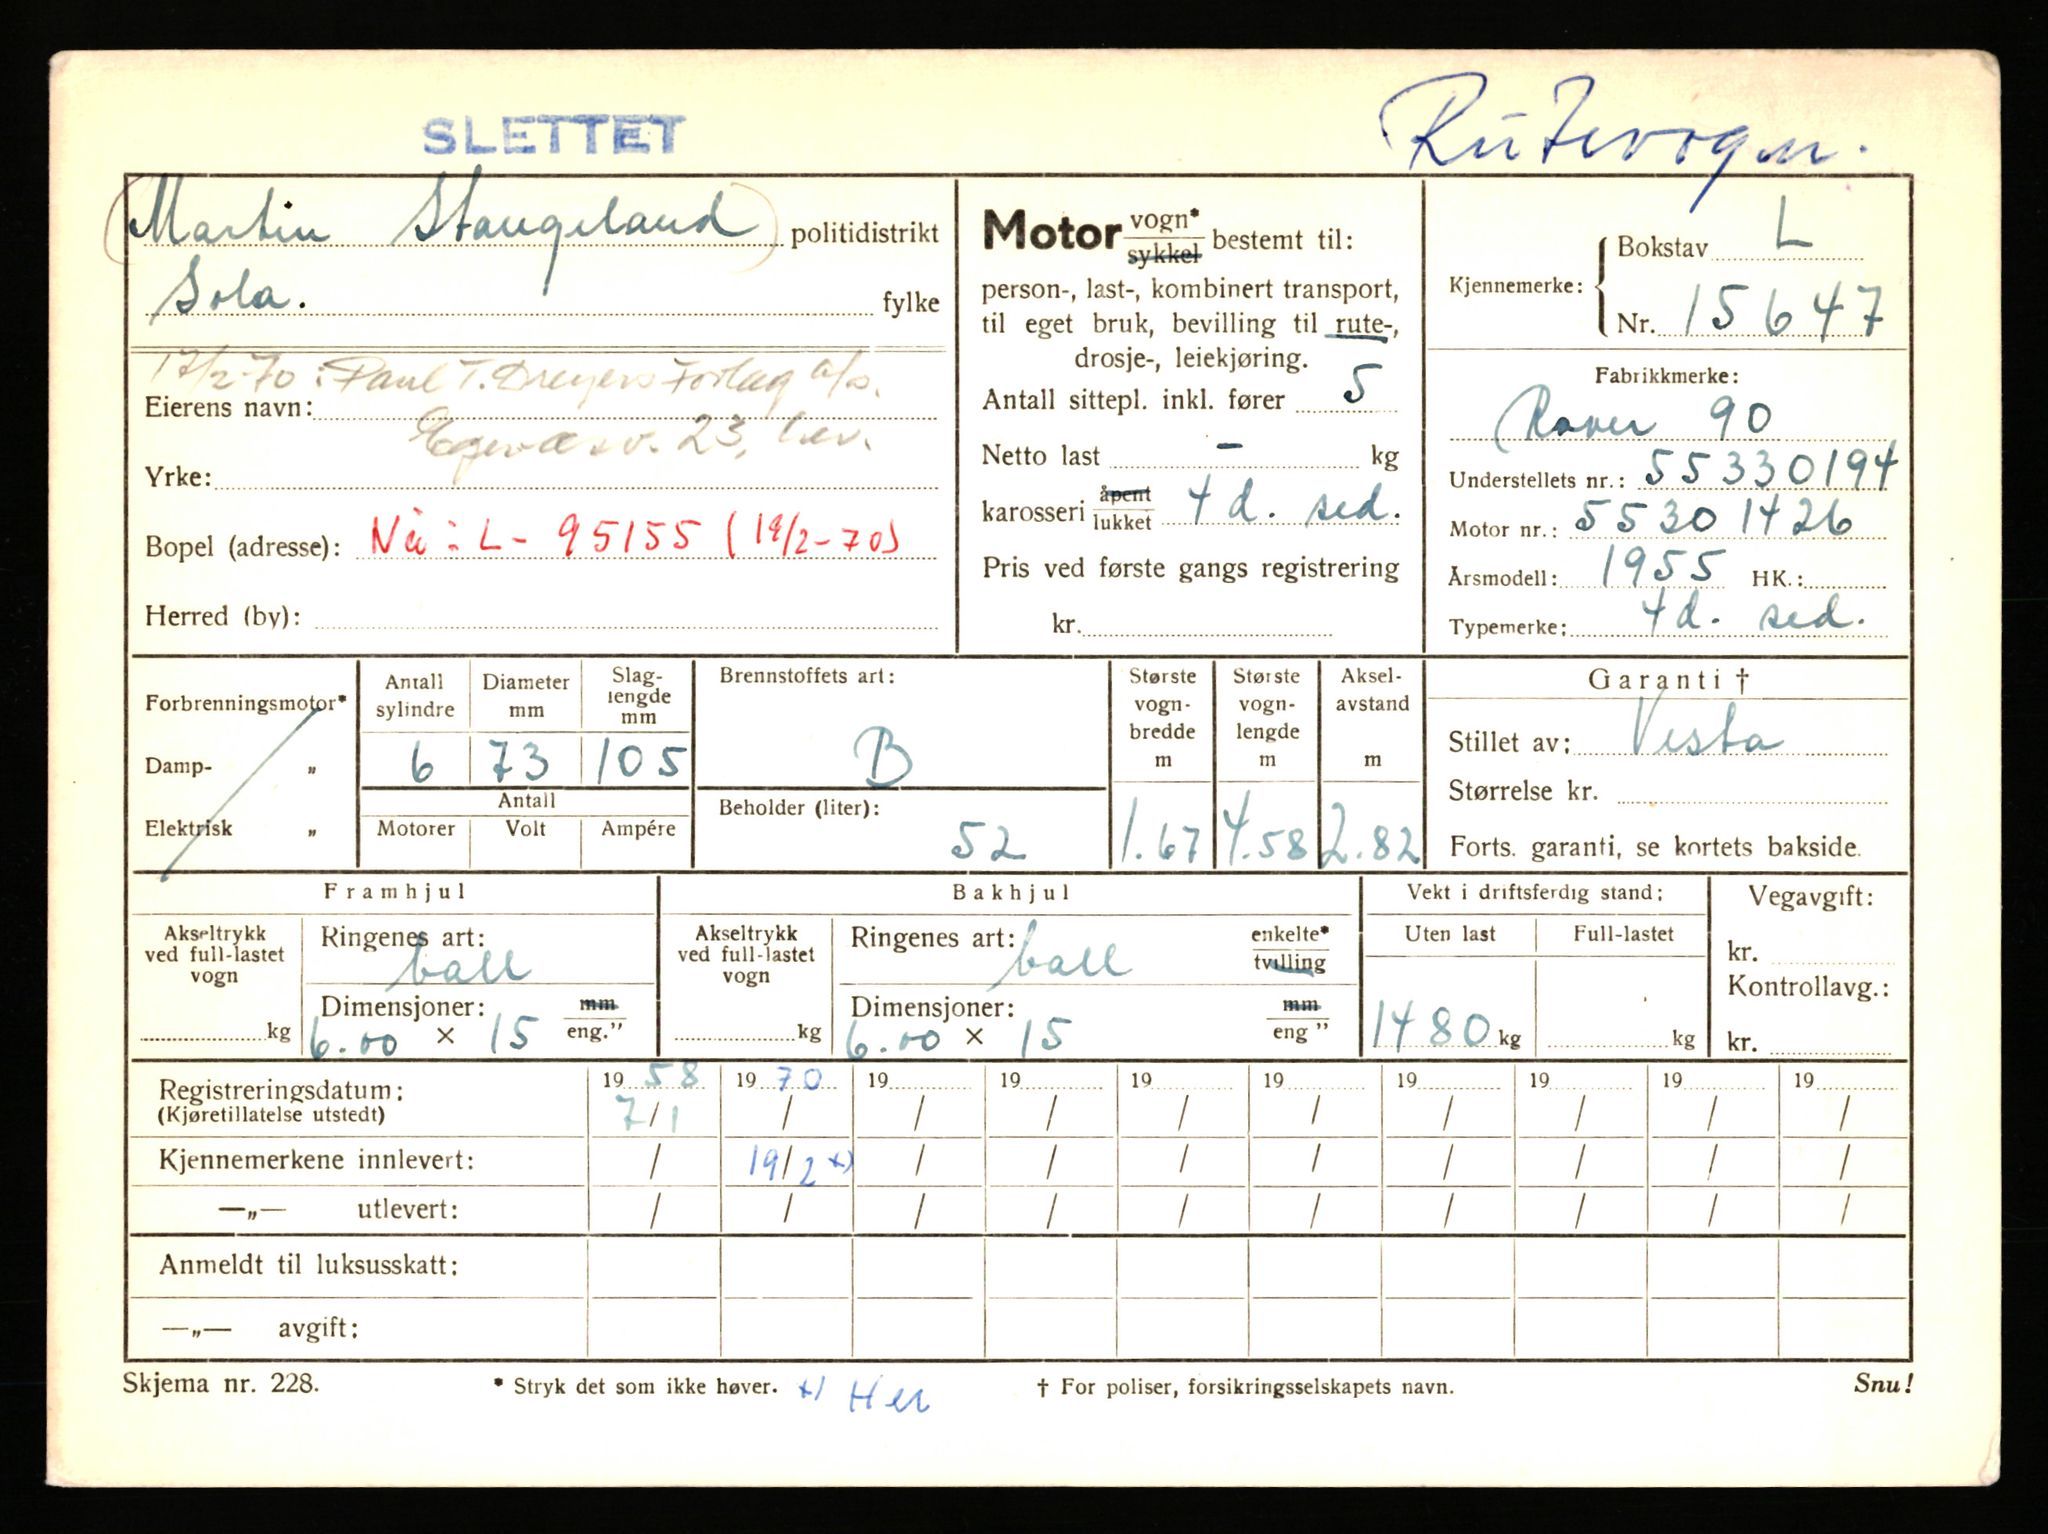 SLETTET
Rutevogn.
Martin Stangeland politidistrikt
Sola. fylke
17/2-70: Paul T. Dreyers Forlag a/s.
Eierens navn:
23,
Yrke:
Bopel (adresse): Nå: L- 95155 (19/2-70)
Herred (by):
Motor vogn* / sykkel bestemt til:
person-, last-, kombinert transport,
til eget bruk, bevilling til rute-,
drosje-, leiekjøring.
Antall sittepl. inkl. fører 5
Netto last - kg
karosseri åpent / lukket 4 d. sed.
Pris ved første gangs registrering
kr.
Kjennemerke: Bokstav L
Nr. 15647
Fabrikkmerke:
Rover 90
Understellets nr.: 55330194
Motor nr.: 55301426
Årsmodell: 1955 HK.:
Typemerke: 4 d. sed.
Forbrenningsmotor*
Damp- „
Elektrisk „
Antall sylindre
6
Diameter mm
73
Slag-lengde mm
105
Antall
Motorer Volt Ampére
Brennstoffets art:
B
Beholder (liter):
52
Største vogn-bredde m
1.67
Største vogn-lengde m
4.58
Aksel-avstand m
2.82
Garanti †
Stillet av: Vesta
Størrelse kr.
Forts. garanti, se kortets bakside.
Framhjul
Akseltrykk ved full-lastet vogn
kg
Ringenes art:
ball
Dimensjoner: mm / eng."
6.00 × 15
Bakhjul
Akseltrykk ved full-lastet vogn
kg
Ringenes art: enkelte* / tvilling
ball
Dimensjoner: mm / eng "
6.00 × 15
Vekt i driftsferdig stand:
Uten last Full-lastet
1480 kg kg
Vegavgift:
kr.
Kontrollavg.:
kr.
Registreringsdatum: 19 58 19 70 19 19 19 19 19 19 19 19
(Kjøretillatelse utstedt) 7/1 / / / / / / / / /
Kjennemerkene innlevert: / 19/2 x) / / / / / / / /
—„— utlevert: / / / / / / / / / /
Anmeldt til luksusskatt:
—„— avgift:
Skjema nr. 228. * Stryk det som ikke høver. x) Her † For poliser, forsikringsselskapets navn. Snu!